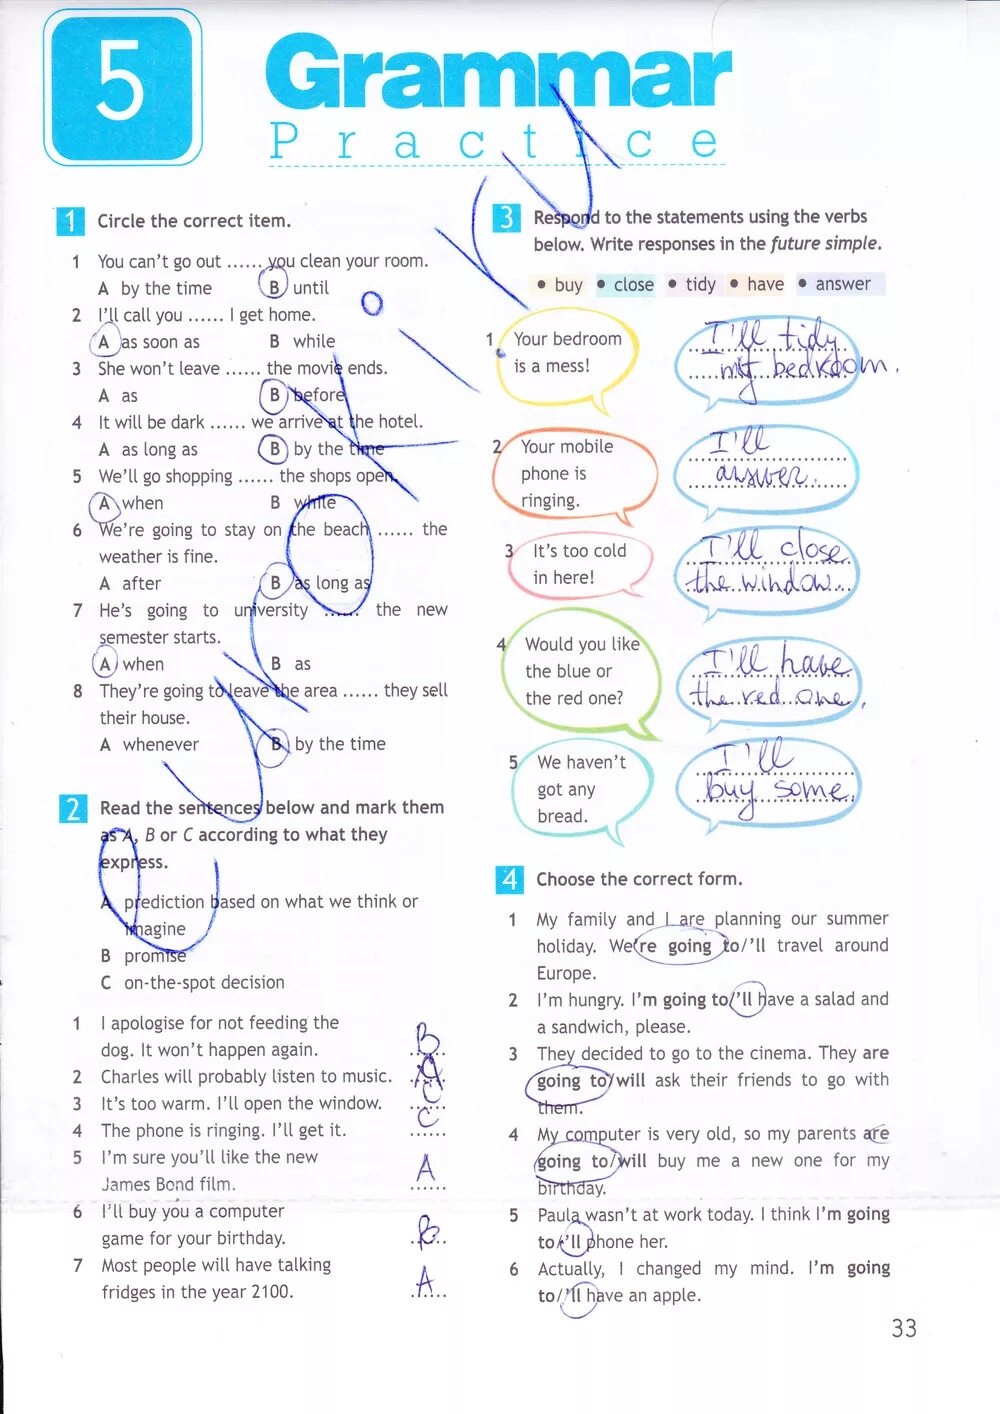 5
Grammar
Practice
1 Circle the correct item.
1 You can't go out ...... you clean your room.
A by the time B until
2 I'll call you ...... I get home.
A as soon as B while
3 She won't leave ...... the movie ends.
A as B before
4 It will be dark ...... we arrive at the hotel.
A as long as B by the time
5 We'll go shopping ...... the shops open.
A when B while
6 We're going to stay on the beach ...... the
weather is fine.
A after B as long as
7 He's going to university ...... the new
semester starts.
A when B as
8 They're going to leave the area ...... they sell
their house.
A whenever B by the time
2 Read the sentences below and mark them
as A, B or C according to what they
express.
A prediction based on what we think or
imagine
B promise
C on-the-spot decision
1 I apologise for not feeding the
dog. It won't happen again. B
2 Charles will probably listen to music. A
3 It's too warm. I'll open the window. C
4 The phone is ringing. I'll get it. C
5 I'm sure you'll like the new
James Bond film. A
6 I'll buy you a computer
game for your birthday. B
7 Most people will have talking
fridges in the year 2100. A
3 Respond to the statements using the verbs
below. Write responses in the future simple.
• buy • close • tidy • have • answer
1 Your bedroom
is a mess!
I'll tidy
my bedroom.
2 Your mobile
phone is
ringing.
I'll
answer.
3 It's too cold
in here!
I'll close
the window.
4 Would you like
the blue or
the red one?
I'll have
the red one.
5 We haven't
got any
bread.
I'll
buy some.
4 Choose the correct form.
1 My family and I are planning our summer
holiday. We're going to/'ll travel around
Europe.
2 I'm hungry. I'm going to/'ll have a salad and
a sandwich, please.
3 They decided to go to the cinema. They are
going to/will ask their friends to go with
them.
4 My computer is very old, so my parents are
going to/will buy me a new one for my
birthday.
5 Paula wasn't at work today. I think I'm going
to/'ll phone her.
6 Actually, I changed my mind. I'm going
to/'ll have an apple.
33